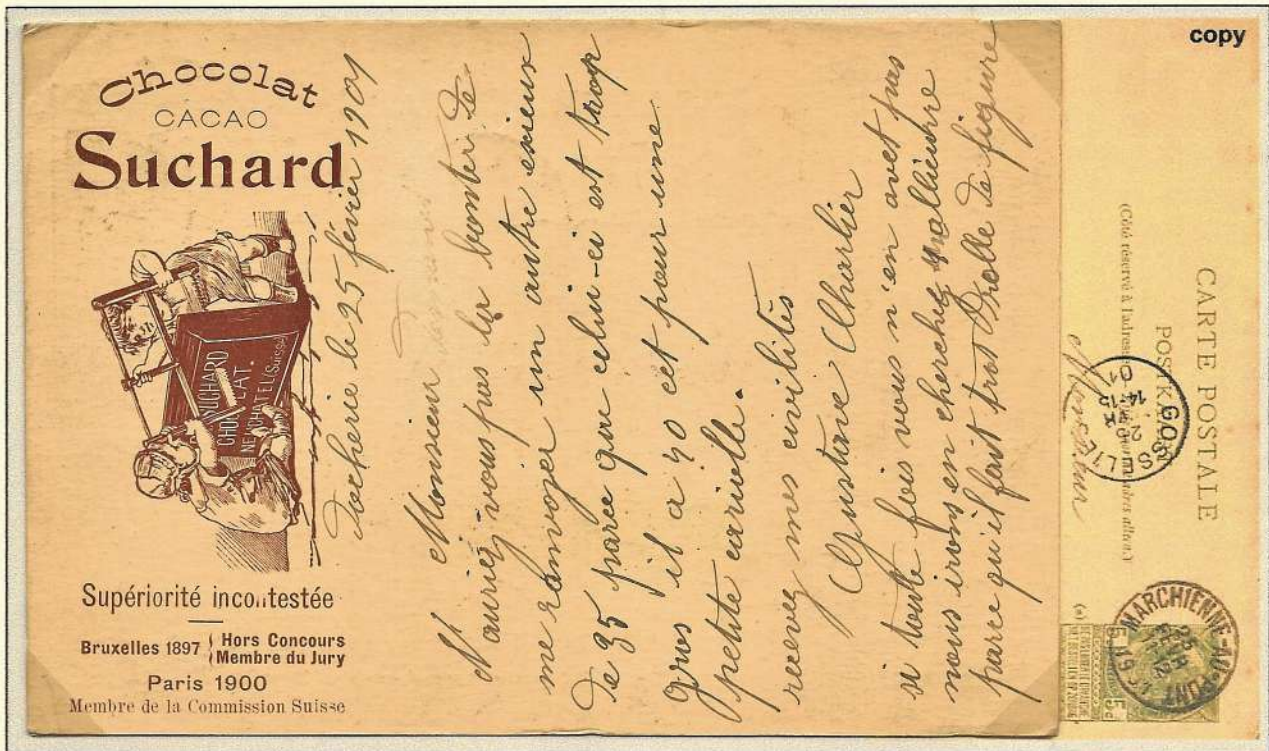 Chocolat
CACAO
Suchard
SUCHARD
CHOCOLAT
NEUCHATEL (SUISSE)
Supériorité incontestée
Bruxelles 1897 { Hors Concours
Membre du Jury
Paris 1900
Membre de la Commission Suisse
Docherie le 25 février 1901
Monsieur
N'auriez vous pas la bonter de
me ranvoyer un autre essieux
de 35 parce que celui-ci est trop
gros il a 40 cet pour une
petite cariolle.
recevez mes civilités
Gustave Charlier
si toute fois vous n'en avet pas
nous irons en cherchez
parce qu'il fait trot drolle de figure
copy
CARTE POSTALE
POSTKAART
(Côté réservé à l'adresse
Monsieur
GOSSELIES
14-15
01
MARCHIENNE-AU-PONT
25
FEVR